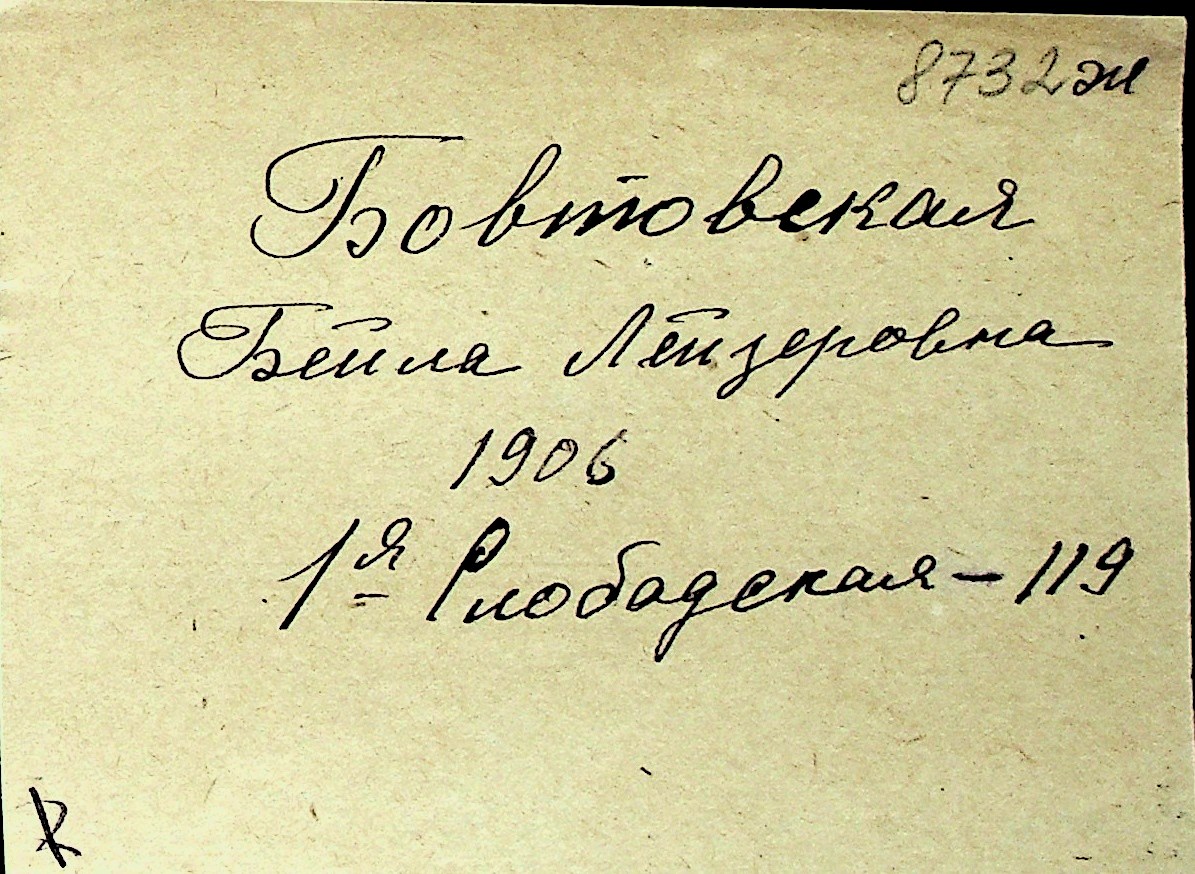 8732ж
Бовтовская
Бейла Лейзеровна
1906
1я Слободская – 119